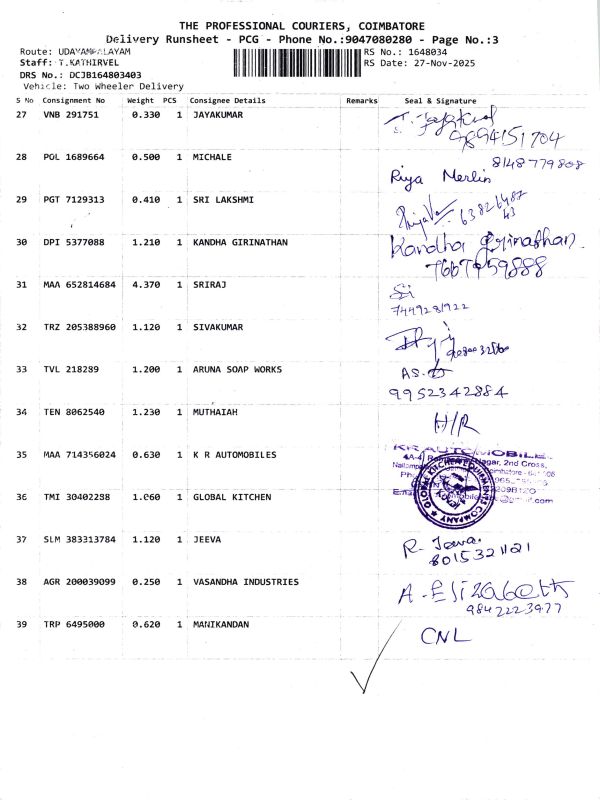 THE PROFESSIONAL COURIERS, COIMBATORE
Delivery Runsheet - PCG - Phone No.:9047080280 - Page No.:3
Route: UDAYAMPALAYAM RS No.: 1648034
Staff: T.KATHIRVEL RS Date: 27-Nov-2025
DRS No.: DCJB164803403
Vehicle: Two Wheeler Delivery
S No Consignment No Weight PCS Consignee Details Remarks Seal & Signature
27 VNB 291751 0.330 1 JAYAKUMAR
9894151704
28 POL 1689664 0.500 1 MICHALE 8148779808
Riya Merlin
29 PGT 7129313 0.410 1 SRI LAKSHMI
30 DPI 5377088 1.210 1 KANDHA GIRINATHAN Kandha Girinathan
7667959888
31 MAA 652814684 4.370 1 SRIRAJ
7449281922
32 TRZ 205388960 1.120 1 SIVAKUMAR
33 TVL 218289 1.200 1 ARUNA SOAP WORKS
9952342884
34 TEN 8062540 1.230 1 MUTHAIAH H/R
35 MAA 714356024 0.630 1 K R AUTOMOBILES KR AUTOMOBILE
Nagar, 2nd Cross,
36 TMI 30402288 1.060 1 GLOBAL KITCHEN GLOBAL KITCHEN EQUIPMENTS COMPANY
37 SLM 383313784 1.120 1 JEEVA R. Jeeva.
8015321121
38 AGR 200039099 0.250 1 VASANDHA INDUSTRIES A. Elizabeth
9842223977
39 TRP 6495000 0.620 1 MANIKANDAN CNL